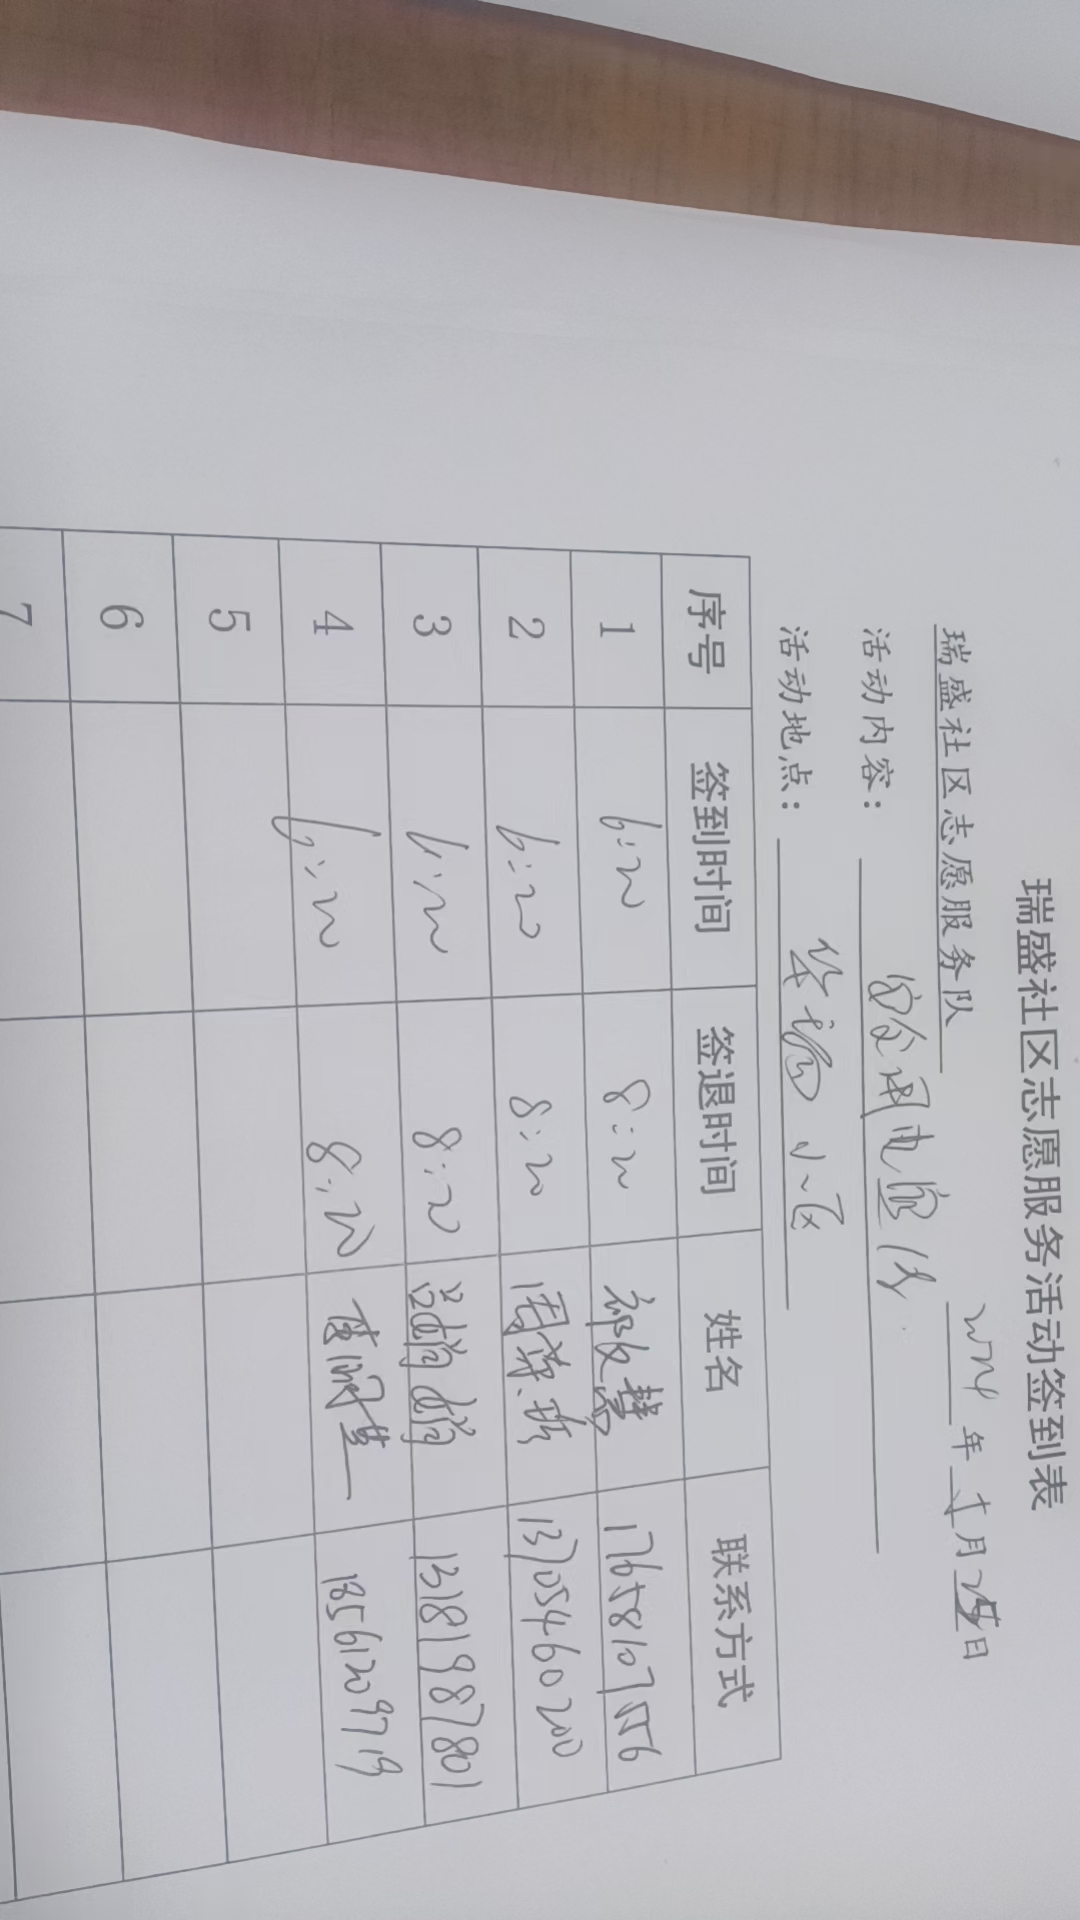 瑞盛社区志愿服务活动签到表
瑞盛社区志愿服务队 2024 年 月 日
活动内容： 安全用电宣传
活动地点： 小区
序号 签到时间 签退时间 姓名 联系方式
1 6:20 8:20 慧 17658107556
2 6:20 8:20 周荣 13705460200
3 6:20 8:20 13181987801
4 6:20 8:20 13561209719
5
6
7